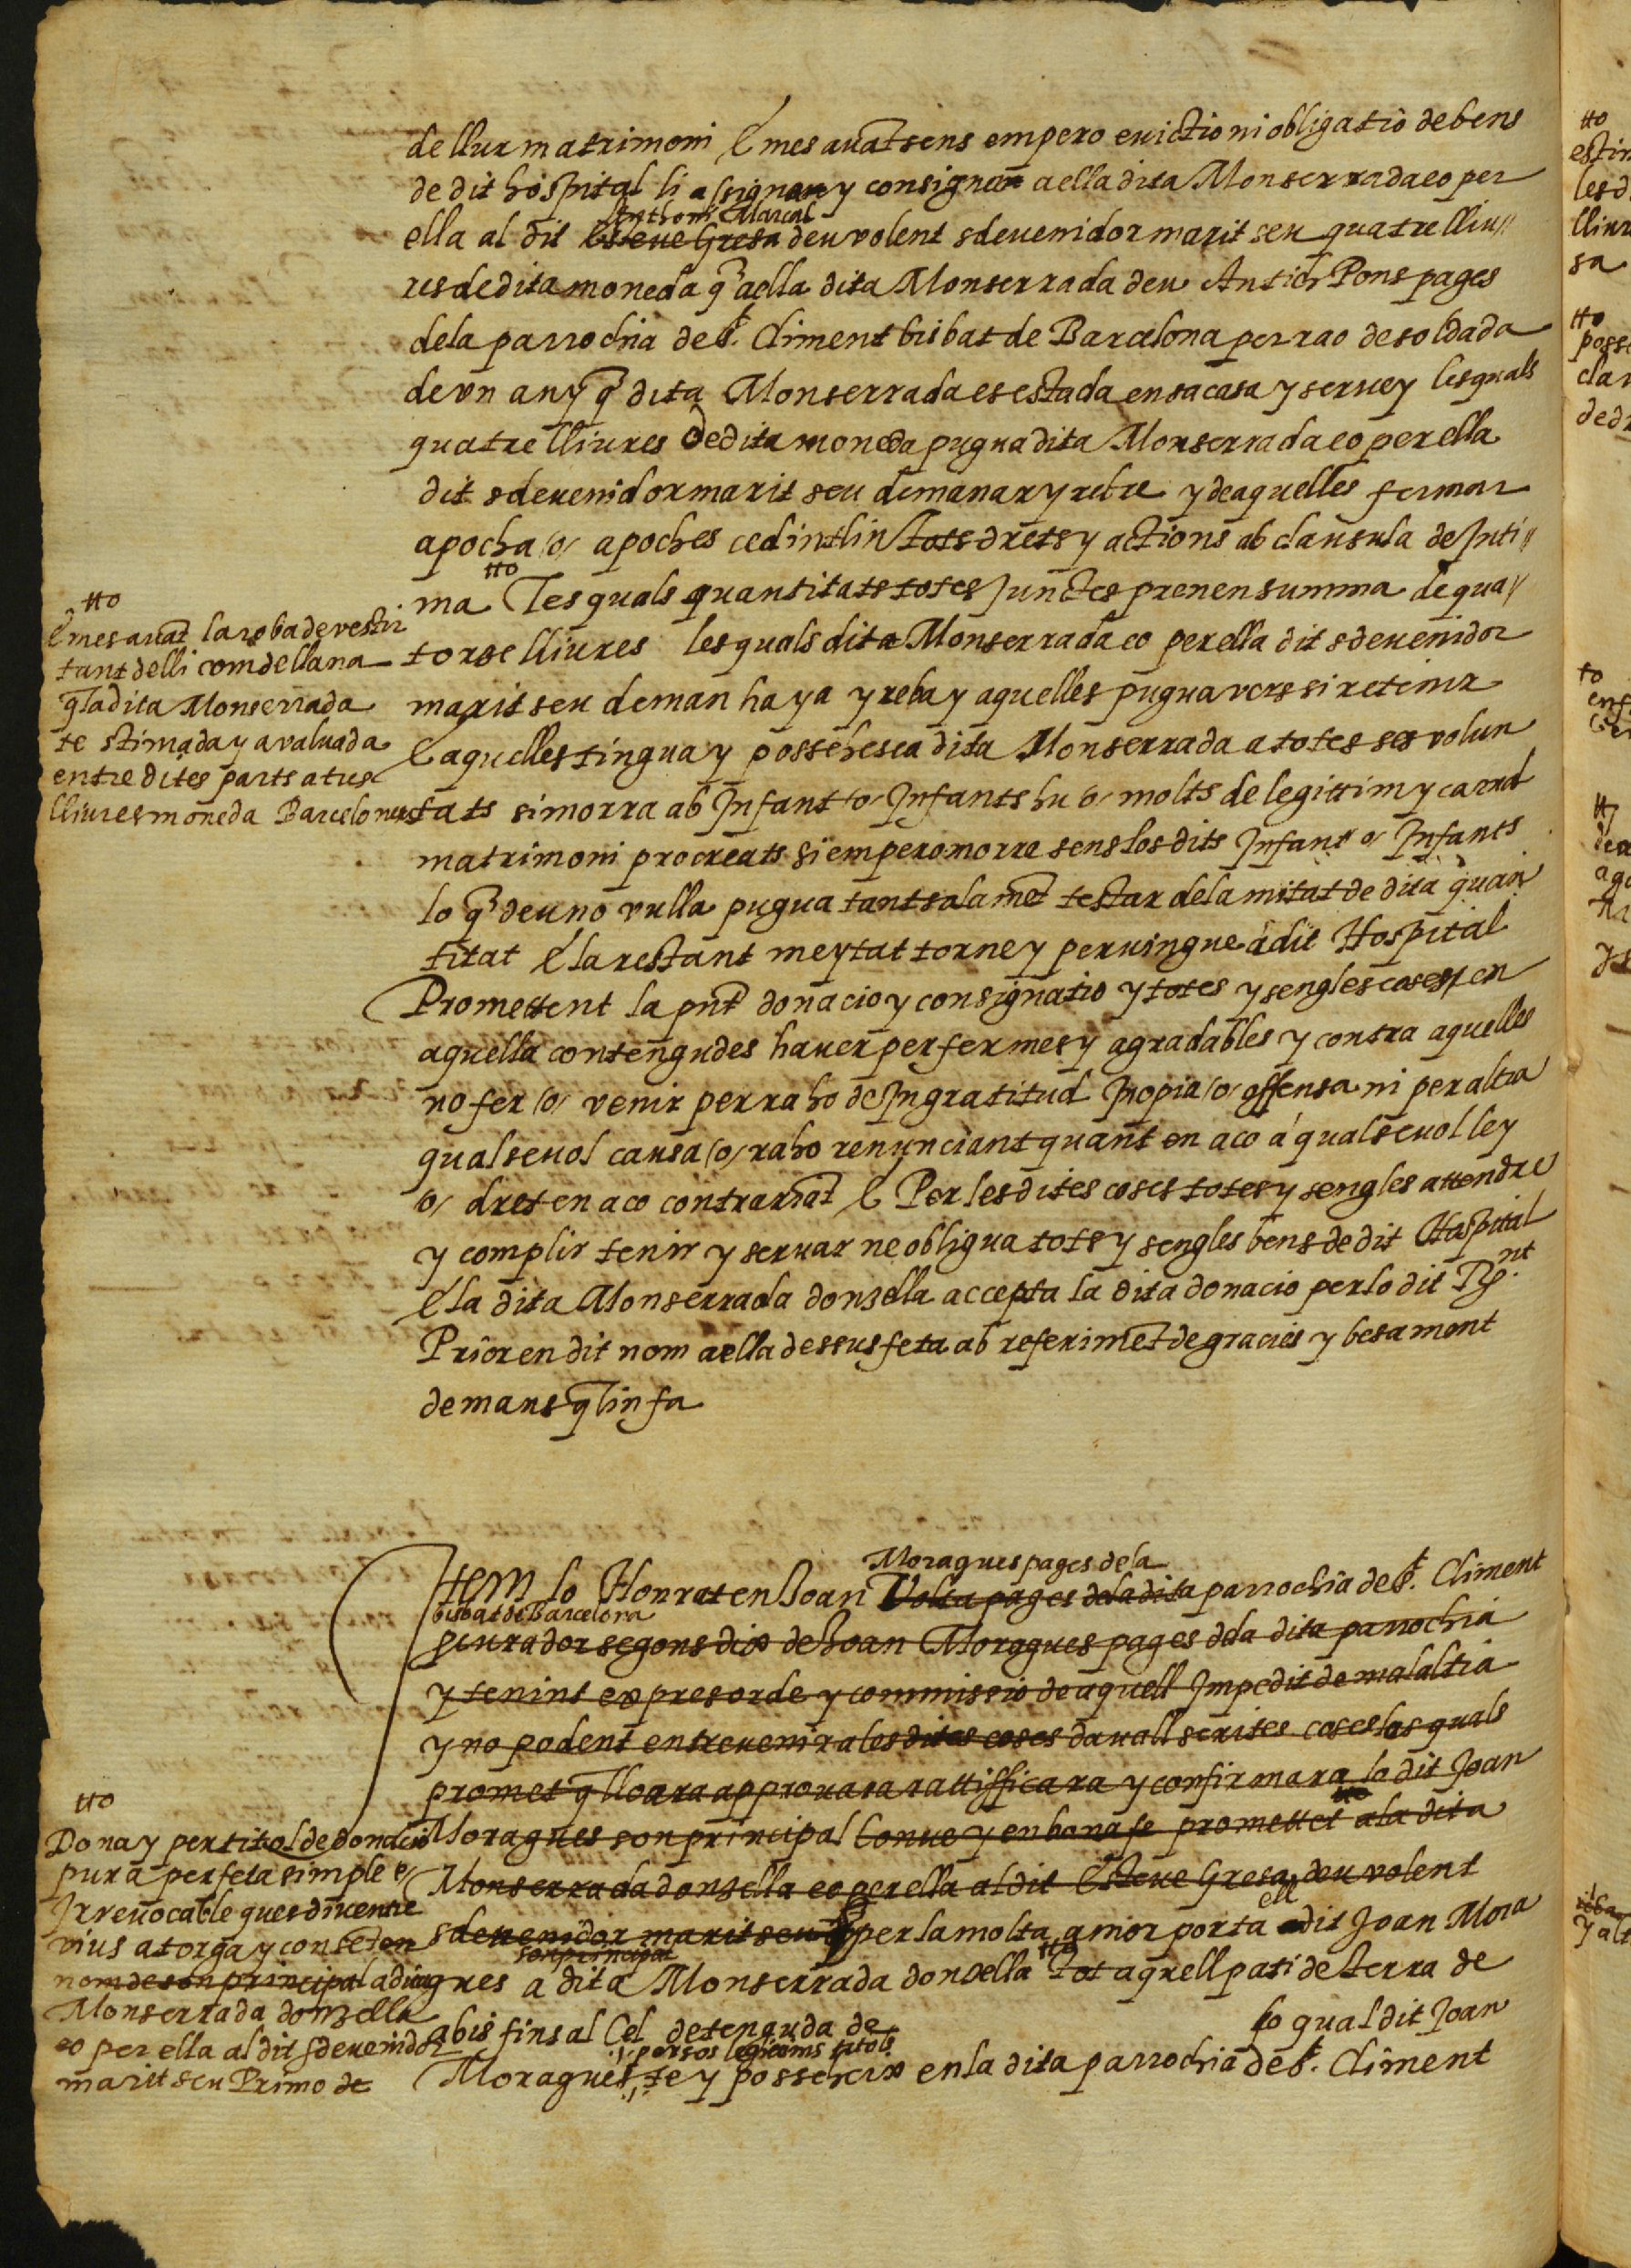 de llur matrimoni E mes auāt sens empero euictio ni obligatio de bens
de dit hospital li assignan y consignan a ella dita Monserrada eo per
Anthoni Marcal
ella al dit Esteue Gresa deu volent sdeuenidor marit seu quatre lliu//
res de dita moneda q̄ a ella dita Monserrada deu Antich Pons pages
dela parrochia de St. Climent bisbat de Barcelona per rao de soldada
de vn any q̄ dita Monserrada es estada en sa casa y seruey les quals
quatre lliures de dita moneda pugua dita Monserrada eo per ella
dit sdeuenidor marit seu demanar y rebre y de aquelles fermar
apocha /o/ apoches cedintlin tots drets y actions ab clausula de Inti//
tto
ma Les quals quantitats totes Junctes prenen summa de qua//
torse lliures les quals dita Monserrada eo per ella dit sdeuenidor
marit seu deman haya y reba y aquelles pugua vers si retenir
E aquelles tingua y possehesca dita Monserrada a totes ses volun
tats si morra ab Infant /o/ Infants hu /o/ molts de legittim y carnal
matrimoni procreats si empero morra sens los dits Infant o/ Infants
lo q̄ deu no vulla pugua tant solamēt testar dela mitat de dita quan
titat E la restant meytat torne y peruingue a dit Hospital
Promettent la pnt donacio y consignatio y totes y sengles coses en
aquella contengudes hauer per fermes y agradables y contra aquelles
no fer /o/ venir per raho de Ingratitud Inopia /o/ offensa ni per altra
qualseuol causa /o/ raho renunciant quant en aco á qualseuol ley
o/ dret en aco contrariāt E Per les dites coses totes y sengles attendre
y complir tenir y seruar ne obligua tots y sengles bens de dit Hospital
E la dita Monserrada donzella accepta la dita donacio per lo dit
Prior en dit nom a ella dessus feta ab referimēt de gracies y besament
de mans q̄ lin fa
tto
E mes auāt la roba de vestir
tant de lli com de llana
q̄ la dita Monserrada
te stimada y avaluada
entre dites parts a tres
lliures moneda Barcelonesa
Moragues pages dela
Item lo Honrat en Joan Volta pages dela dita parrochia de St. Climent
bisbat de Barcelona
pcurador segons dix de Joan Moragues pages dela dita parrochia
y tenint expres orde y commissio de aquell Impedit de malaltia
y no podent entreuenir a les dites coses dauall scrites coses los quals
promet q̄ lloara approuara rattifficara y confirmara lo dit Joan
Moragues son principal Conue y en bona fe promettet a la dita
Monserrada donzella eo per ella al dit Esteue Gresa deu volent
ell
sdeuenidor marit seu per la molta amor porta dit Joan Mora
son principal
gues a dita Monserrada donzella Tot aquell pati de terra de
abis fins al Cel detenguda de lo qual dit Joan
persos legitims titols
Moragues te y posseheix en la dita parrochia de St. Climent
tto
Dona y per titol de donacio
pura perfeta simple e/
Irreuocable ques diu entre
vius atorga y conset en
nom de son principal a dita
Monserrada donzella
eo per ella al dit sdeuenidor
marit seu Primo de